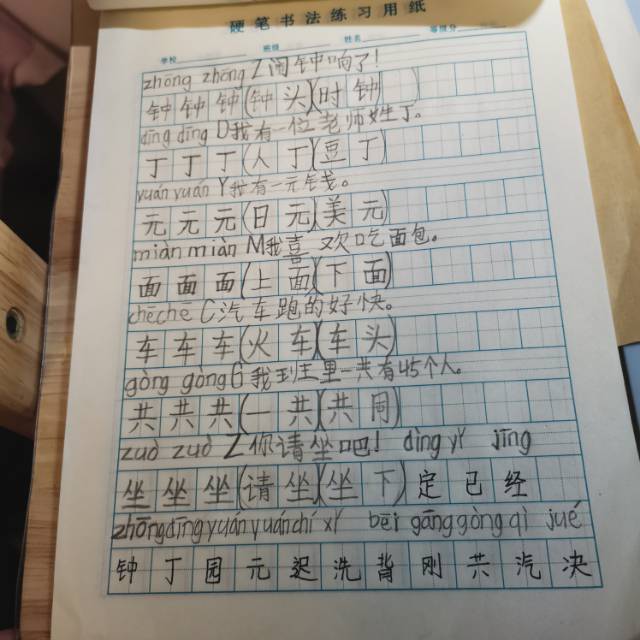 硬笔书法练习用纸
学校 班级 姓名 等级分
zhōng zhōng Z闹钟响了!
钟钟钟(钟头)(时钟)
dīng dīng D我有一位老师姓丁。
丁丁丁(人丁)(豆丁)
yuán yuán Y我有一元钱。
元元元(日元)(美元)
miàn miàn M我喜欢吃面包。
面面面(上面)(下面)
chē chē C汽车跑的好快。
车车车(火车)(车头)
gòng gòng G我班里一共有45个人。
共共共(一共)(共同)
zuò zuò Z你请坐吧! dìng yǐ jīng
坐坐坐(请坐)(坐下)定已经
zhōng dīng yuán yuán chí xǐ bēi gāng gòng qì jué
钟丁园元迟洗背刚共汽决